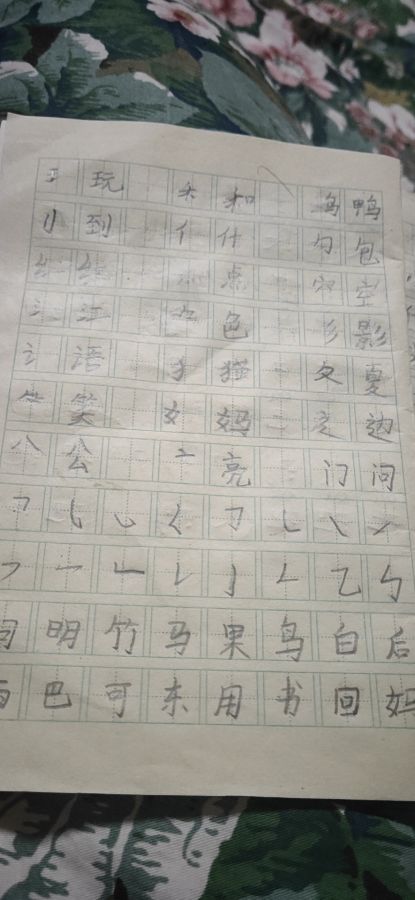 王 玩 禾 和 鸟 鸭
刂 到 亻 什 勹 包
纟 绿 灬 点 穴 空
氵 江 色 彡 影
讠 语 犭 猫 夂 夏
⺮ 笑 女 妈 辶 边
八 公 亠 亮 门 问
乛 ㇏ 丿
一 乙
明 竹 马 果 鸟 白 后
巴 可 东 用 书 回 妈